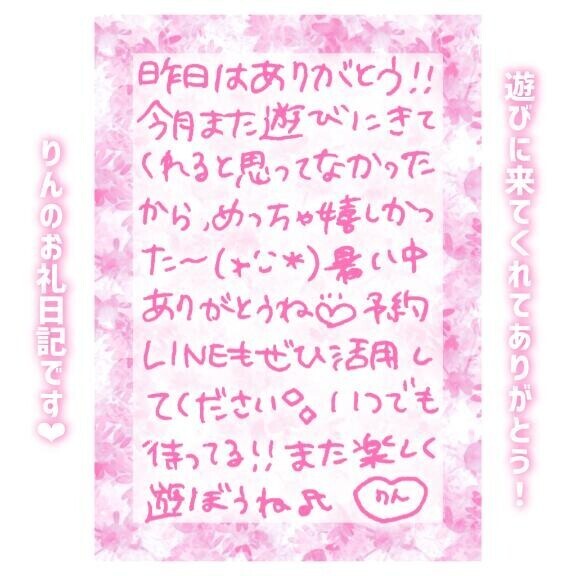 遊びに来てくれてありがとう!
昨日はありがとう!!
今月また遊びにきて
くれると思ってなかった
から、めっちゃ嬉しかっ
た〜(*ˊᵕˋ*)暑い中
ありがとうね♡予約
LINEもぜひ活用し
てください。いつでも
待ってる!!また楽しく
遊ぼうね♪ りん
りんのお礼日記です❤